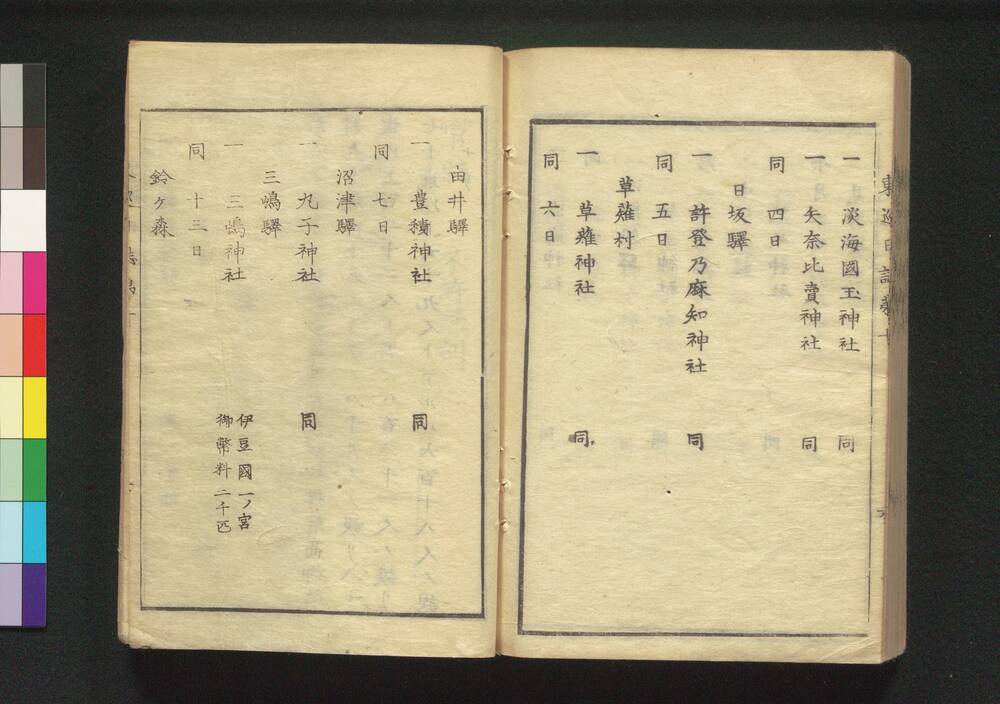 一 淡海國玉神社 同
一 矢奈比賣神社 同
同 四日
日坂驛
一 許登乃麻知神社 同
同 五日
草薙村
一 草薙神社 同
同 六日
由井驛
一 豊積神社 同
同 七日
沼津驛
一 九子神社 同
三嶋驛
一 三嶋神社 伊豆國一ノ宮
御幣料二千匹
同 十三日
鈴ヶ森